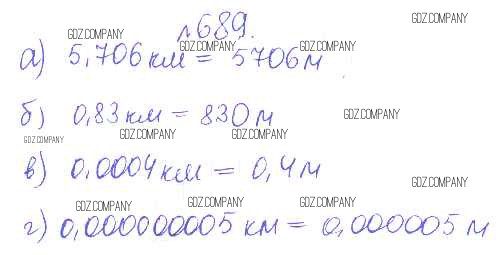 GDZ.COMPANY
№689.
GDZ.COMPANY
GDZ.COMPANY GDZ.COMPANY
а) 5,706 км = 5706 м
б) 0,83 км = 830 м
GDZ.COMPANY
GDZ.COMPANY GDZ.COMPANY GDZ.COMPANY
в) 0,0004 км = 0,4 м
GDZ.COMPANY
GDZ.COMPANY GDZ.COMPANY GDZ.COMPANY
г) 0,000000005 км = 0,000005 м